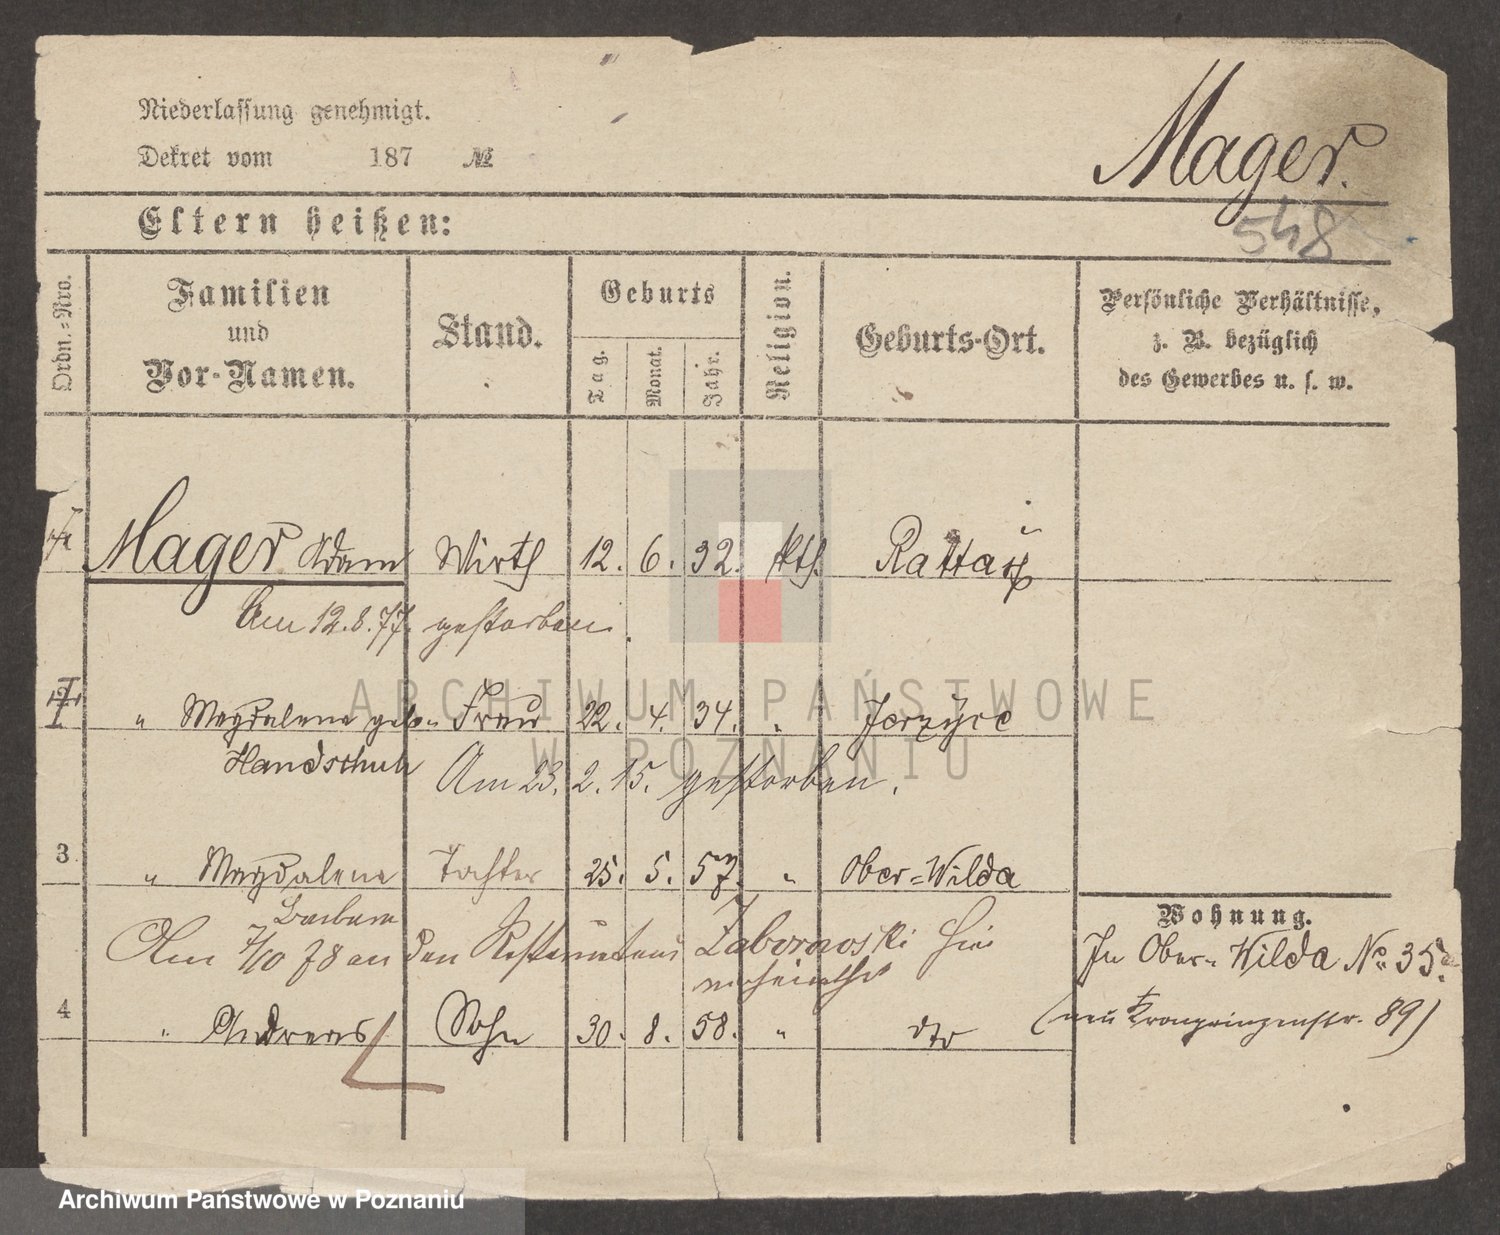 Niederlassung genehmigt.
Dekret vom 187 №
Mager.
548
Eltern heißen:
Ordn.-Nro.
Familien
und
Vor-Namen.
Stand.
Geburts
Tag.
Monat.
Jahr.
Religion.
Geburts-Ort.
Persönliche Verhältnisse,
z. B. bezüglich
des Gewerbes u. s. w.
Mager Adam Wirth 12. 6. 32. kth. Rattaj
Am 12.8.77. gestorben.
" Magdalena geb. Frau 22. 4. 34. " Jerzyce
Handschuh Am 23. 2. 15. gestorben.
3 " Magdalena Tochter 25. 5. 57. " Ober-Wilda
Barbara
Am 7/10 78 an den Zaborowski hier
verheirathet
4 " Andreas Sohn 30. 8. 58. " dto
Wohnung.
In Ober-Wilda No. 35.
(neu Kronprinzenstr. 89)
ARCHIWUM PAŃSTWOWE
W POZNANIU
Archiwum Państwowe w Poznaniu